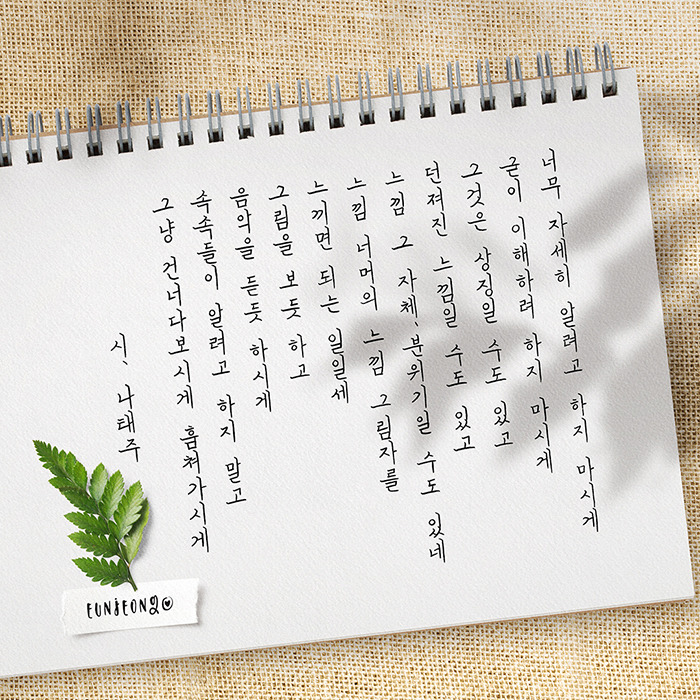 너무 자세히 알려고 하지 마시게
굳이 이해하려 하지 마시게
그것은 상징일 수도 있고
던져진 느낌일 수도 있고
느낌 그 자체, 분위기일 수도 있네
느낌 너머의 느낌 그림자를
느끼면 되는 일일세
그림을 보듯 하고
음악을 듣듯 하시게
속속들이 알려고 하지 말고
그냥 건너다보시게 훔쳐가시게
시, 나태주
EUNJEONGQ